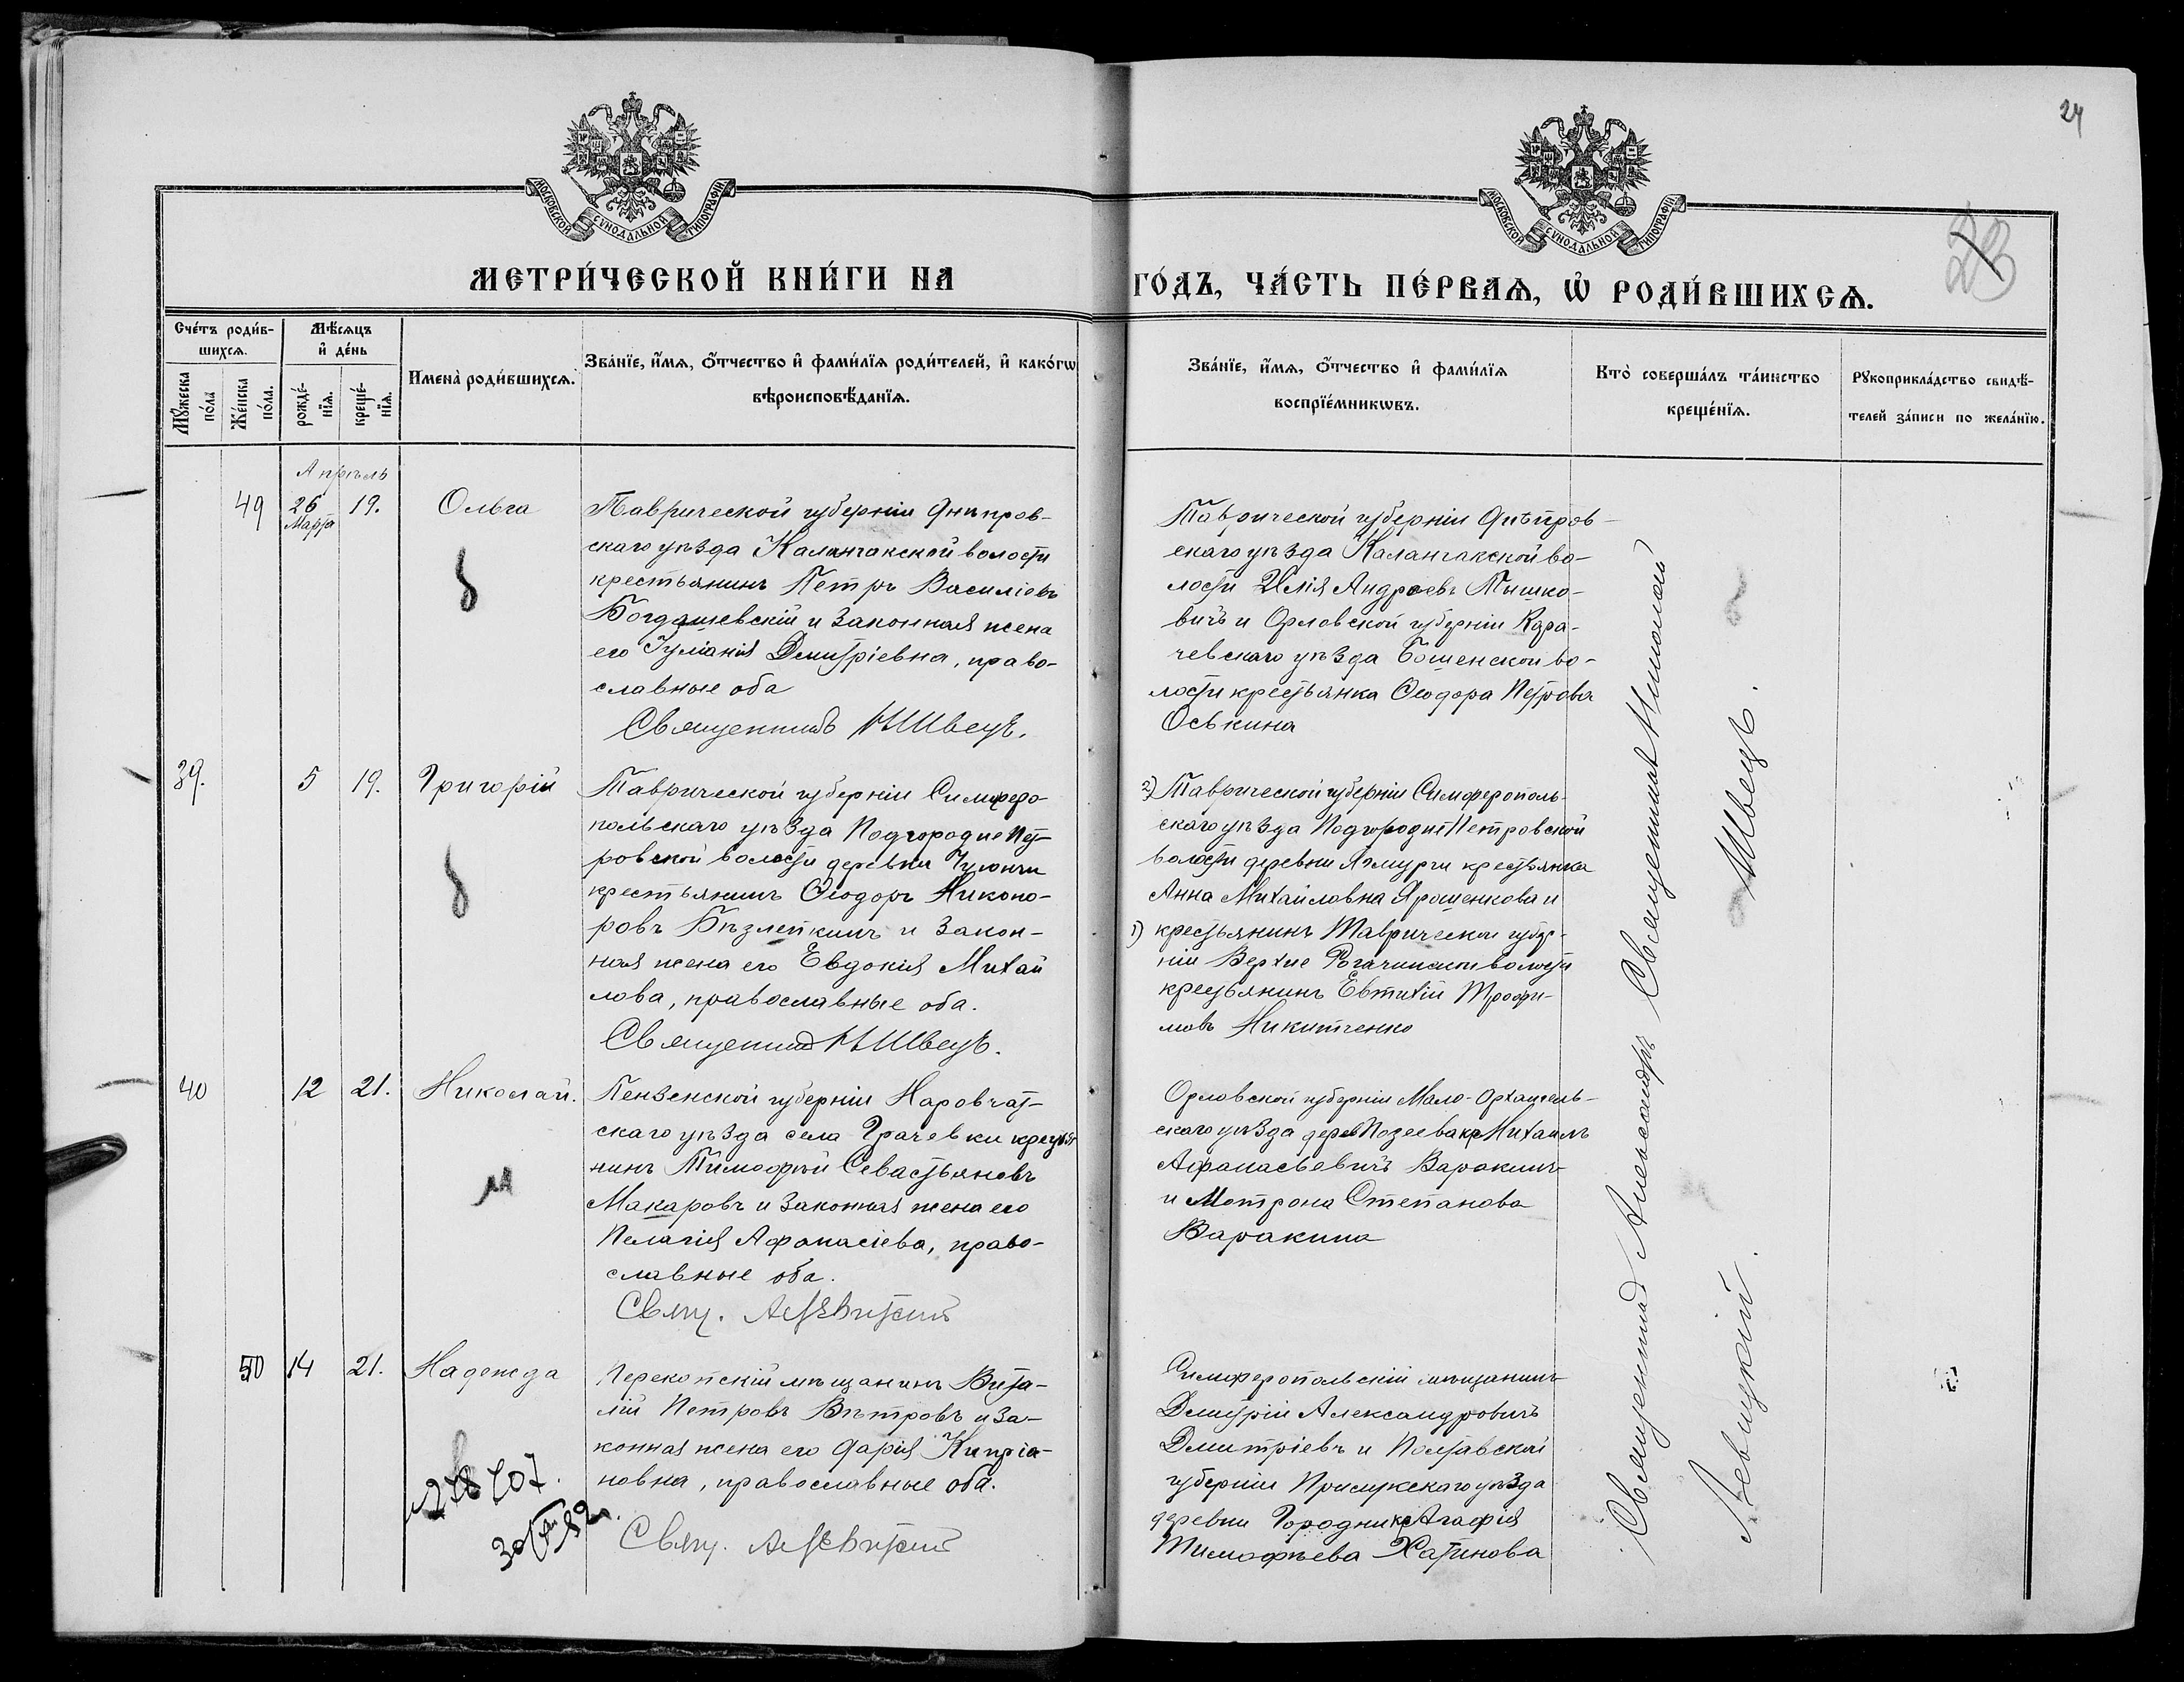 24
28
МОСКОВСКОЙ СѴНОДАЛЬНОЙ ТИПОГРАФІИ
МОСКОВСКОЙ СѴНОДАЛЬНОЙ ТИПОГРАФІИ
МЕТРИ́ЧЕСКОЙ КНИ́ГИ НА
ГО́ДЪ, ЧА́СТЬ ПЕ́РВАѦ, Ѡ҆ РОДИ́ВШИХСѦ.
Сче́тъ роди́в-
шихсѧ.
Мꙋ́жеска
по́ла
Же́нска
по́ла.
Мѣ́сѧцъ
и҆ де́нь
рожде́-
нїѧ.
креще́-
нїѧ.
Имена̀ роди́вшихсѧ.
Зва́нїе, и҆́мѧ, ѻ҆́тчество и҆ фами́лїѧ роди́телей, и҆ како́гѡ
вѣроисповѣ́данїѧ.
Зва́нїе, и҆́мѧ, ѻ҆́тчество и҆ фами́лїѧ
воспрїе́мникѡвъ.
Кто̀ соверша́лъ та́инство
креще́нїѧ.
Рꙋкоприкла́дство свидѣ́-
телей за́писи по жела́нїю.
Апрѣль
49
26
Марта
19.
Ольга
Таврической губерніи Днѣпров-
скаго уѣзда Каланчакской волости
крестьянинъ Петръ Василіевъ
Богдашевскій и законная жена
его Іуліанія Димитріевна, право-
славные оба
Священникъ Н Швецъ.
Таврической губерніи Днѣпров-
скаго уѣзда Каланчакской во-
лости Илія Андреевъ Мышко-
вичъ и Орловской губерніи Кара-
чевскаго уѣзда Бошенской во-
лости крестьянка Ѳеодора Петрова
Оськина
39.
5
19.
Григорій
Таврической губерніи Симферо-
польскаго уѣзда Подгородне Пет-
ровской волости деревни
крестьянинъ Ѳеодоръ Никоно-
ровъ Бѣзлепкинъ и закон-
ная жена его Евдокія Михай
лова, православные оба.
Священникъ Н Швецъ.
2) Таврической губерніи Симферополь-
скаго уѣзда Подгородне Петровской
волости деревни крестьянка
Анна Михайловна Ярошенкова и
1) крестьянинъ Таврической губер-
ніи Верхне Рогачинской волости
крестьянинъ Евтихій Трофи-
мовъ Никитченко
40
12
21.
Николай.
Пензенской губерніи Наровчат-
скаго уѣзда села Грачевки крестья
нинъ Тимофѣй Севастьяновъ
Макаровъ и законная жена его
Пелагія Афанасіева, право-
славные оба.
Свящ. А Левитскій
Орловской губерніи Мало-Архангель-
скаго уѣзда дерев Позеева кр Михаилъ
Афанасьевичъ Варакинъ
и Мотрона Степанова
Варакина
50
14
21.
Надежда
Перекопскій мѣщанинъ Вита-
лій Петровъ Вѣтровъ и за-
конная жена его Дарія Кипріа-
новна, православные оба.
Свящ. А Левитскій
Симферопольскій мѣщанинъ
Димитрій Александровичъ
Димитріевъ и Полтавской
губерніи Прилукскаго уѣзда
деревни Городни кр Агафія
Тимофѣева Хатинова
Священникъ Александръ
Левицкій.
Священникъ Николай
Швецъ.